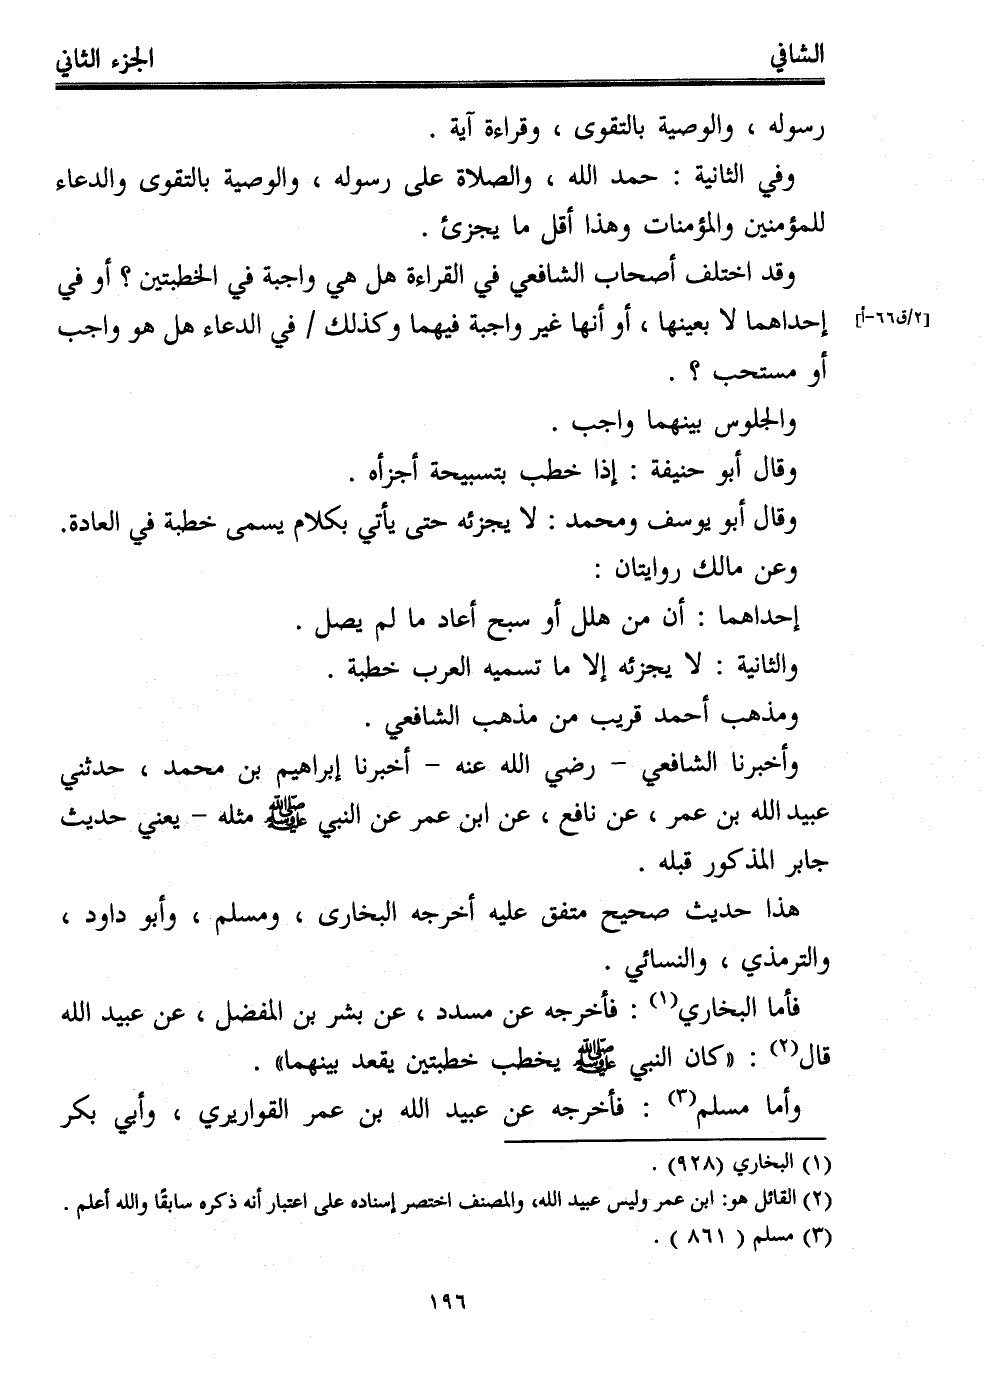 الشافي الجزء الثاني
رسوله ، والوصية بالتقوى ، وقراءة آية .
وفي الثانية : حمد الله ، والصلاة على رسوله ، والوصية بالتقوى والدعاء
للمؤمنين والمؤمنات وهذا أقل ما يجزئ .
وقد اختلف أصحاب الشافعي في القراءة هل هي واجبة في الخطبتين ؟ أو في
إحداهما لا بعينها ، أو أنها غير واجبة فيهما وكذلك / في الدعاء هل هو واجب
[٢/ق٦٦-أ]
أو مستحب ؟ .
والجلوس بينهما واجب .
وقال أبو حنيفة : إذا خطب بتسبيحة أجزأه .
وقال أبو يوسف ومحمد : لا يجزئه حتى يأتي بكلام يسمى خطبة في العادة.
وعن مالك روايتان :
إحداهما : أن من هلل أو سبح أعاد ما لم يصل .
والثانية : لا يجزئه إلا ما تسميه العرب خطبة .
ومذهب أحمد قريب من مذهب الشافعي .
وأخبرنا الشافعي – رضي الله عنه – أخبرنا إبراهيم بن محمد ، حدثني
عبيد الله بن عمر ، عن نافع ، عن ابن عمر عن النبي ﷺ مثله – يعني حديث
جابر المذكور قبله .
هذا حديث صحيح متفق عليه أخرجه البخارى ، ومسلم ، وأبو داود ،
والترمذي ، والنسائي .
فأما البخاري(١) : فأخرجه عن مسدد ، عن بشر بن المفضل ، عن عبيد الله
قال(٢) : «كان النبي ﷺ يخطب خطبتين يقعد بينهما» .
وأما مسلم(٣) : فأخرجه عن عبيد الله بن عمر القواريري ، وأبي بكر
(١) البخاري (٩٢٨) .
(٢) القائل هو: ابن عمر وليس عبيد الله، والمصنف اختصر إسناده على اعتبار أنه ذكره سابقًا والله أعلم .
(٣) مسلم ( ٨٦١ ) .
١٩٦